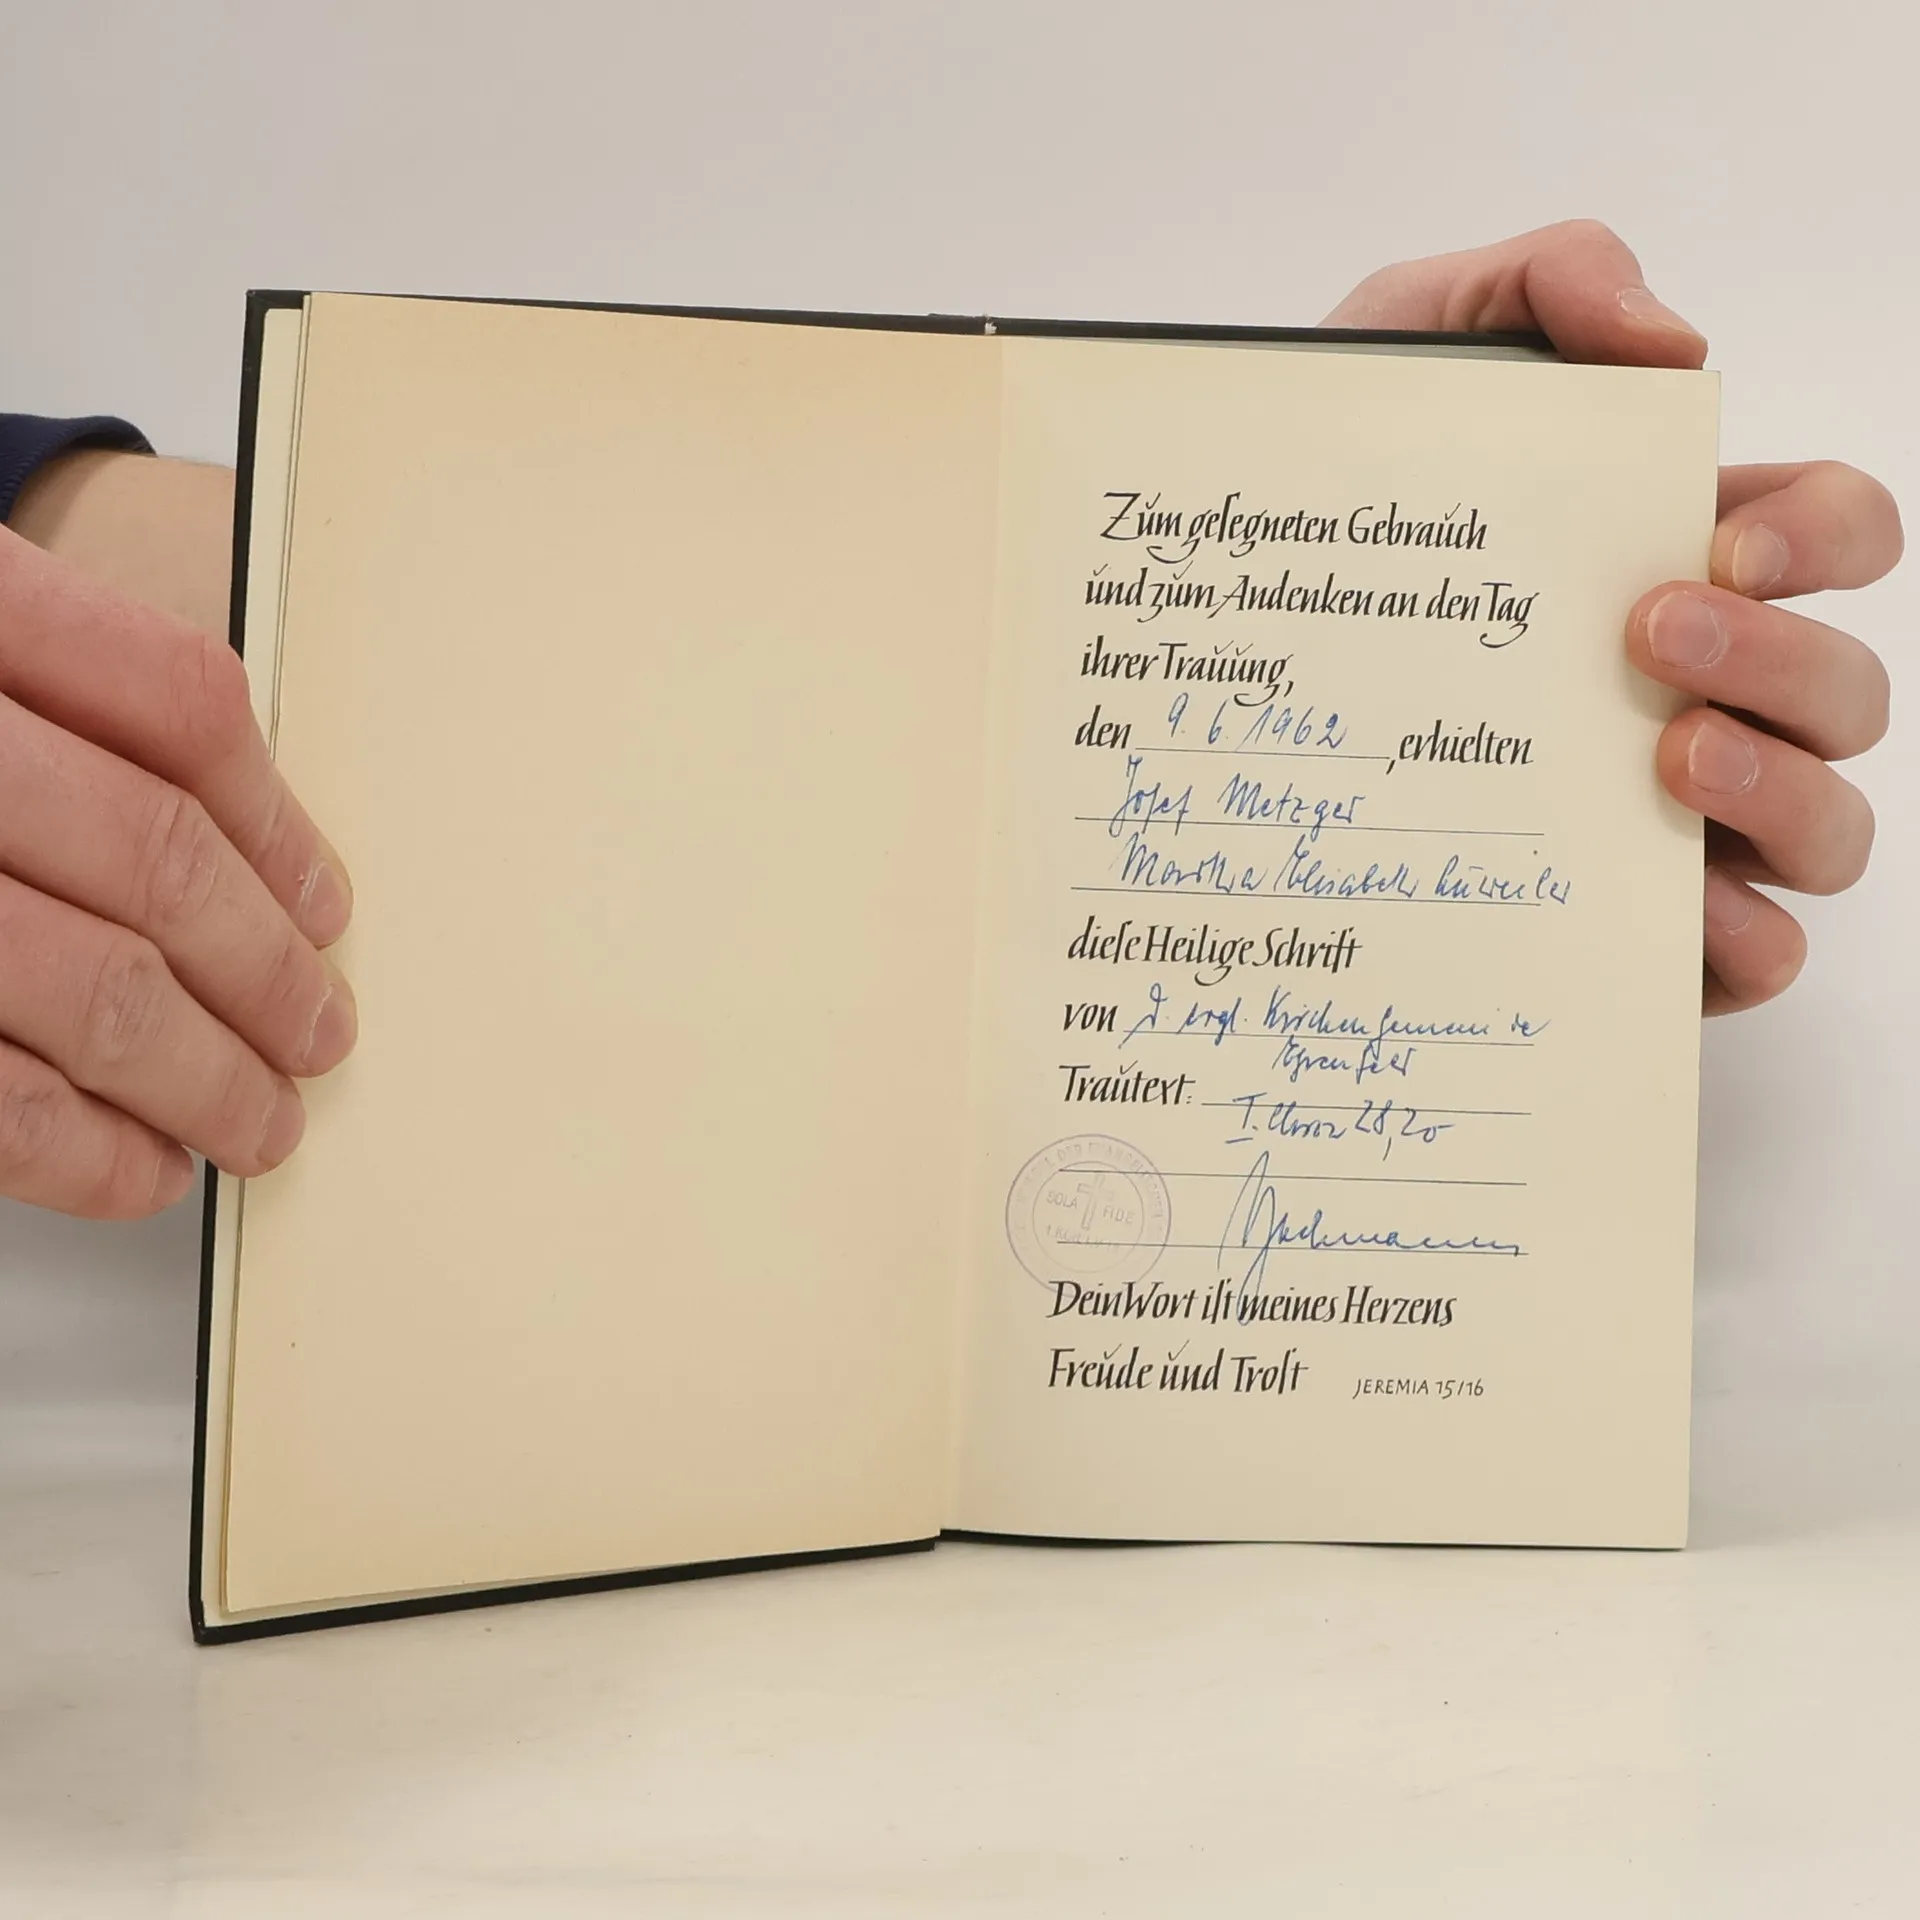 Zum gesegneten Gebrauch
und zum Andenken an den Tag
ihrer Trauung,
den 9. 6. 1962, erhielten
Josef Metzger
Marika Elisabeth
diese Heilige Schrift
von d. evgl. Kirchengemeinde
Ehrenfeld
Trautext:
I. Chron 28,20
SOLA FIDE
Dein Wort ist meines Herzens
Freude und Trost JEREMIA 15/16